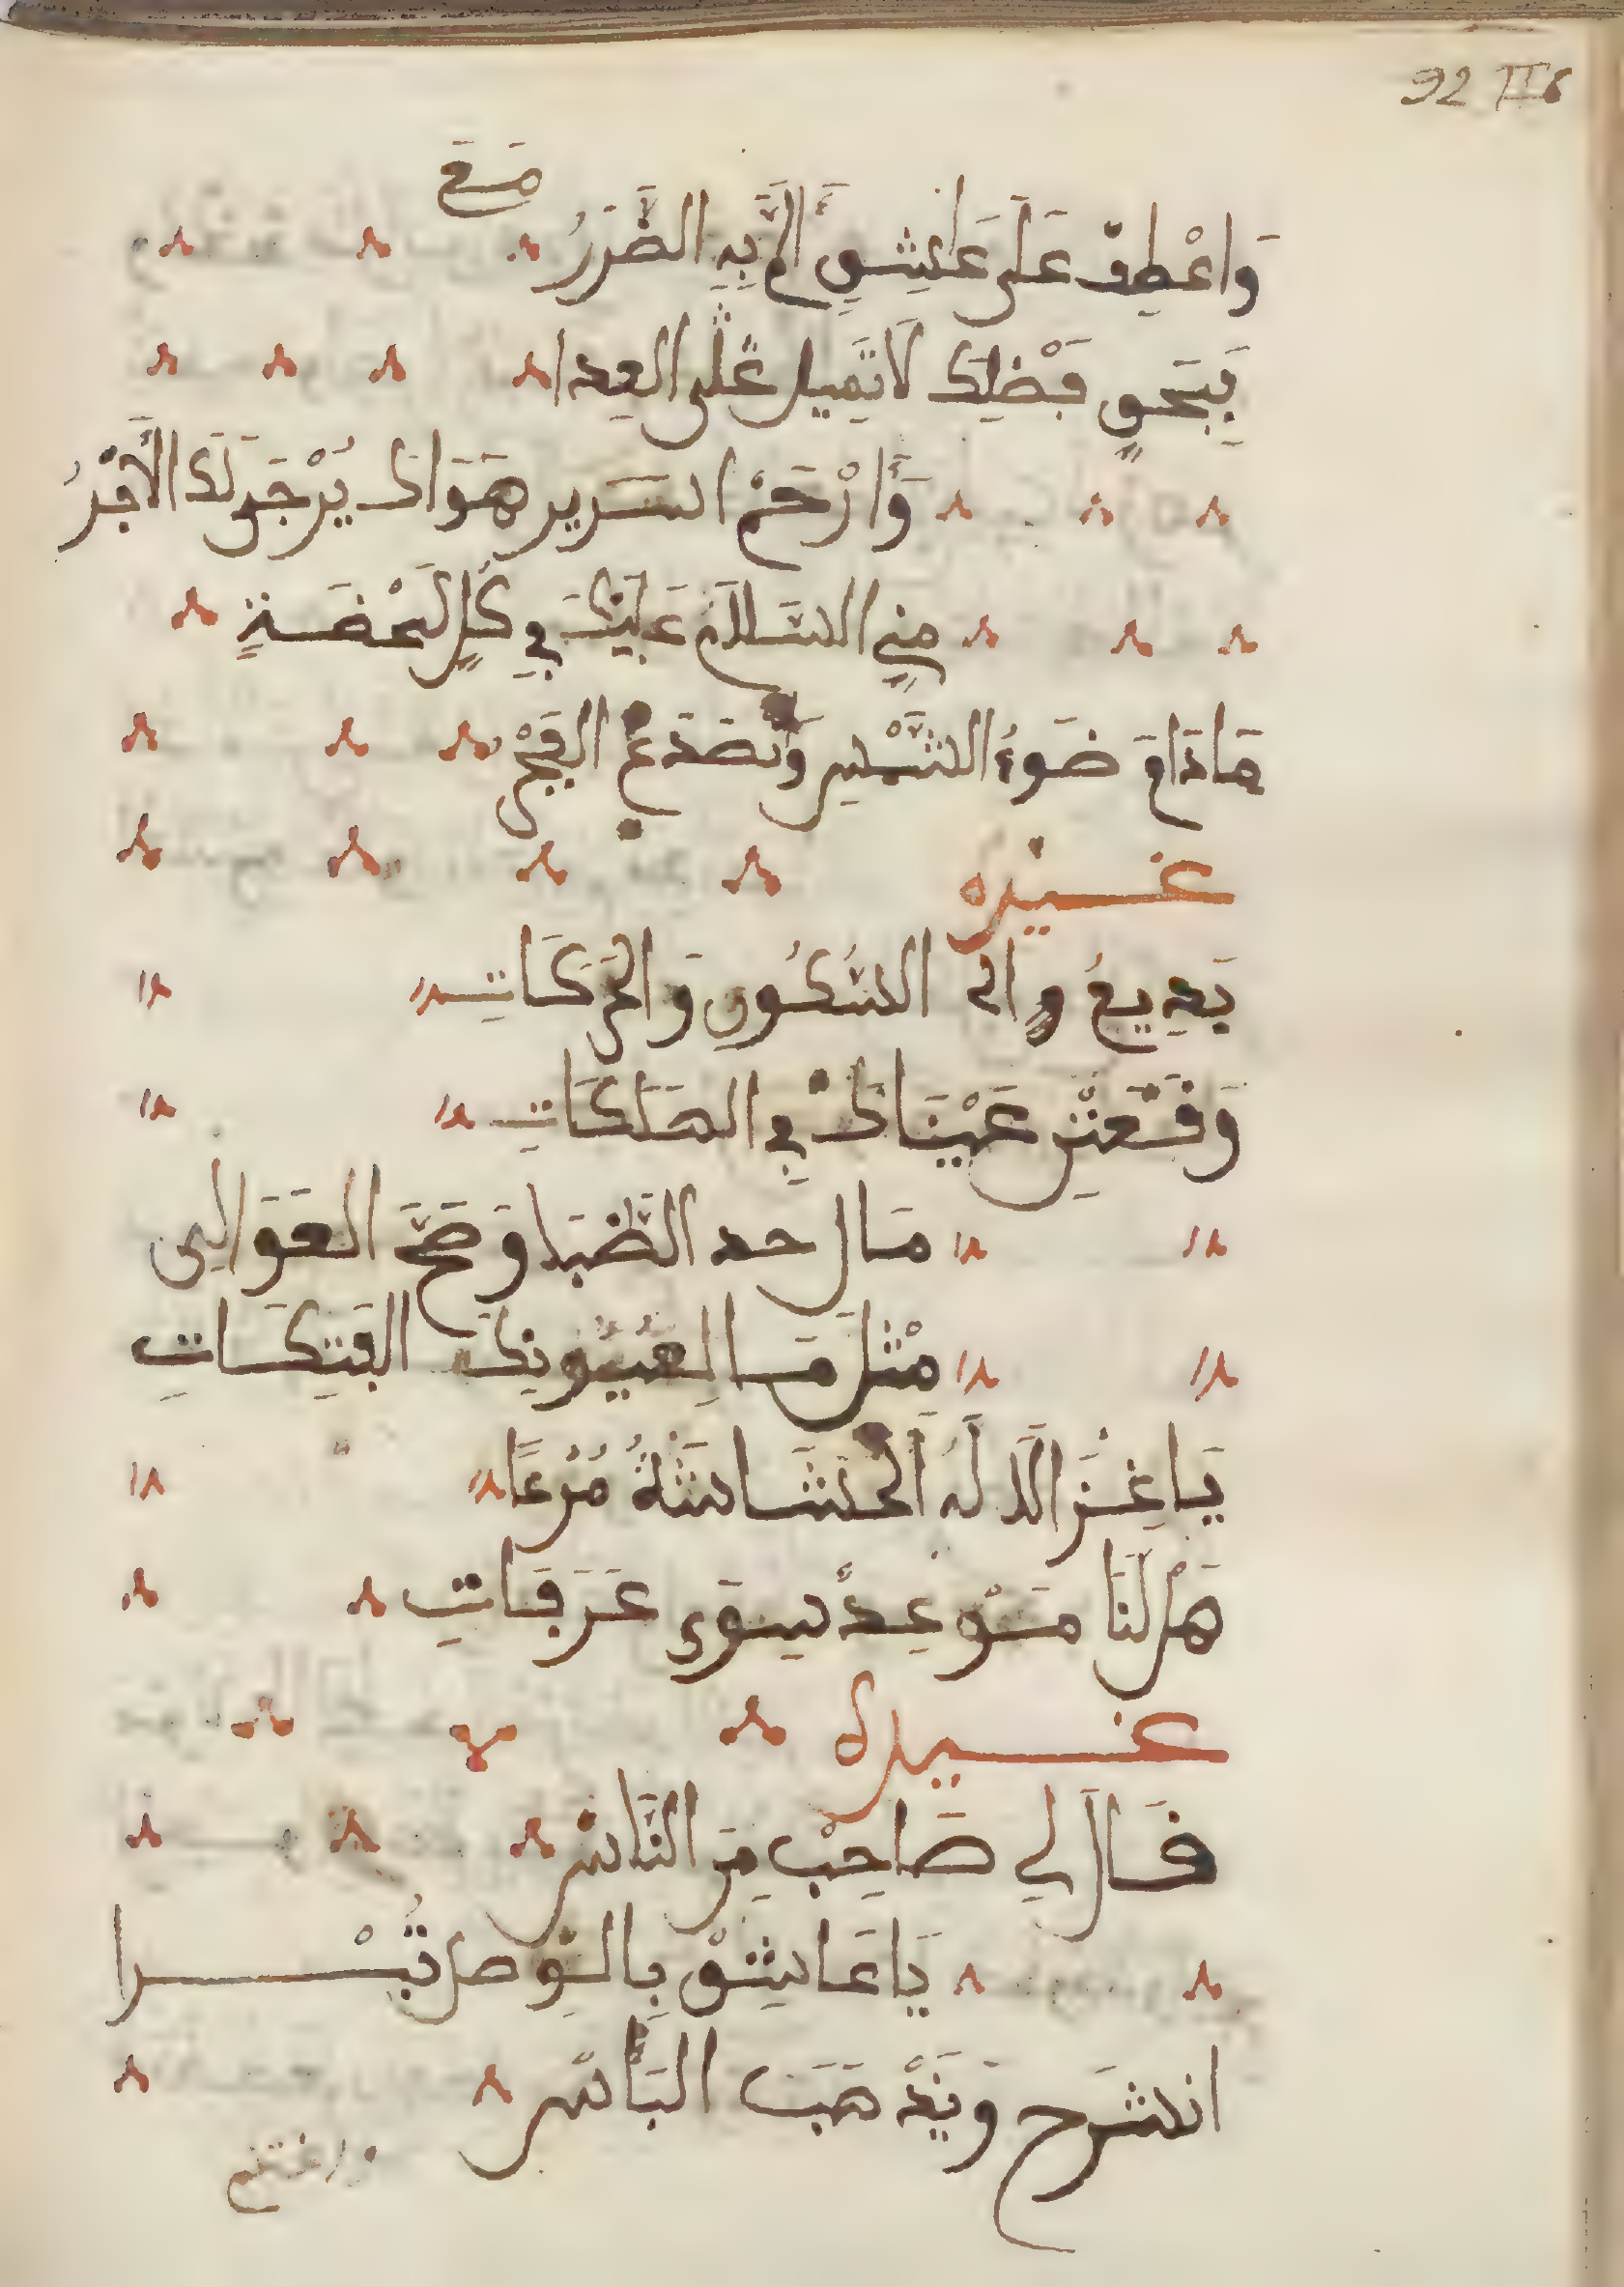 92 II
مع
وَاعْطِفْ عَلَى عَاشِقٍ أَلَمَّ بِهِ الضَّرَرُ
بِحَقِّ فَضْلِكَ لَا تَمِيل عَلَى العِدا
وَارْحَمْ اسير هَوَاكَ يُرْجَى لَكَ الأَجْرُ
مِنِّي السَّلَامْ عَلَيْكَ فِي كُلِّ لَحْضَةٍ
مَا دَامَ ضَوءُ الشَّمْسِ وَانْصَدَعْ الفَجْرْ
غيره
بَدِيعُ السُّكُونِ وَالحَرَكَاتِ
وَقَعَتْنِي عَيْنَاكْ فِي الهَلَكَاتِ
مَال حد الظُّبَا وَضَحَّ العَوَالِي
مِثْلَ مَا لِعُيُونِكَ الفَتِكَاتِ
يَا غَزَالًا لَهُ الحُشَاشَةُ مُرْعًا
هَلْ لَنَا مَوْعِدٌ سِوَى عَرَفَاتِ
غيره
قَالَ لِي صَاحِبْ مِنَ النَّاسْ
يَا عَاشِقْ بِالوِصل تُبْرا
انشَرح وَيَذْهَبَ البَأسْ
واغتنم